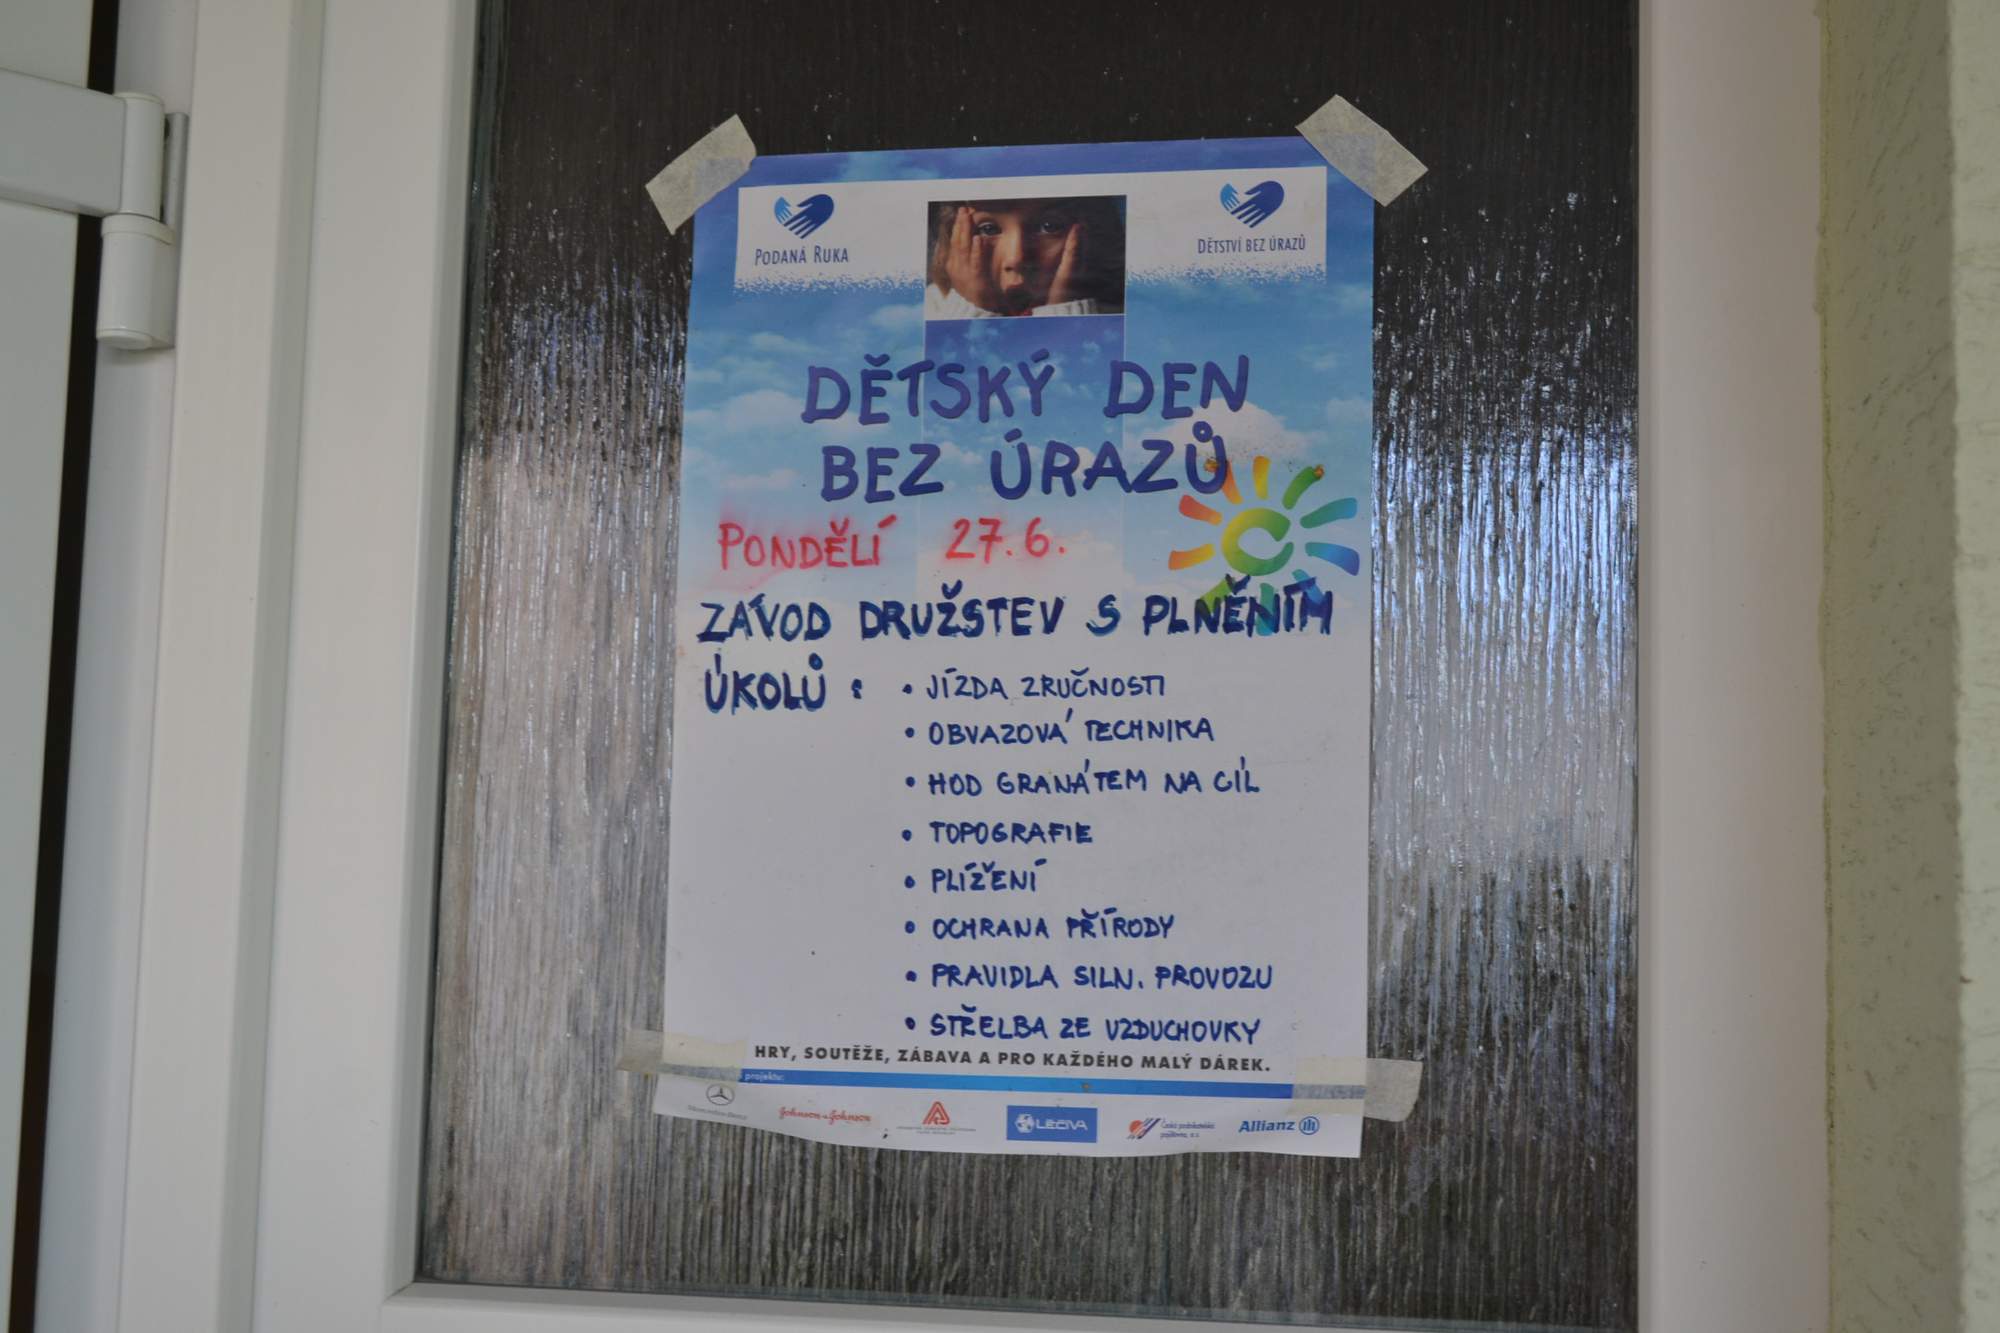 PODANÁ RUKA
DĚTSTVÍ BEZ ÚRAZŮ
DĚTSKÝ DEN
BEZ ÚRAZŮ
PONDĚLÍ 27.6.
ZÁVOD DRUŽSTEV S PLNĚNÍM
ÚKOLŮ :
• JÍZDA ZRUČNOSTI
• OBVAZOVÁ TECHNIKA
• HOD GRANÁTEM NA CÍL
• TOPOGRAFIE
• PLÍŽENÍ
• OCHRANA PŘÍRODY
• PRAVIDLA SILN. PROVOZU
• STŘELBA ZE VZDUCHOVKY
HRY, SOUTĚŽE, ZÁBAVA A PRO KAŽDÉHO MALÝ DÁREK.
projektu:
Mercedes-Benz
Johnson & Johnson
LÉČIVA
Česká podnikatelská
pojišťovna, a.s.
Allianz